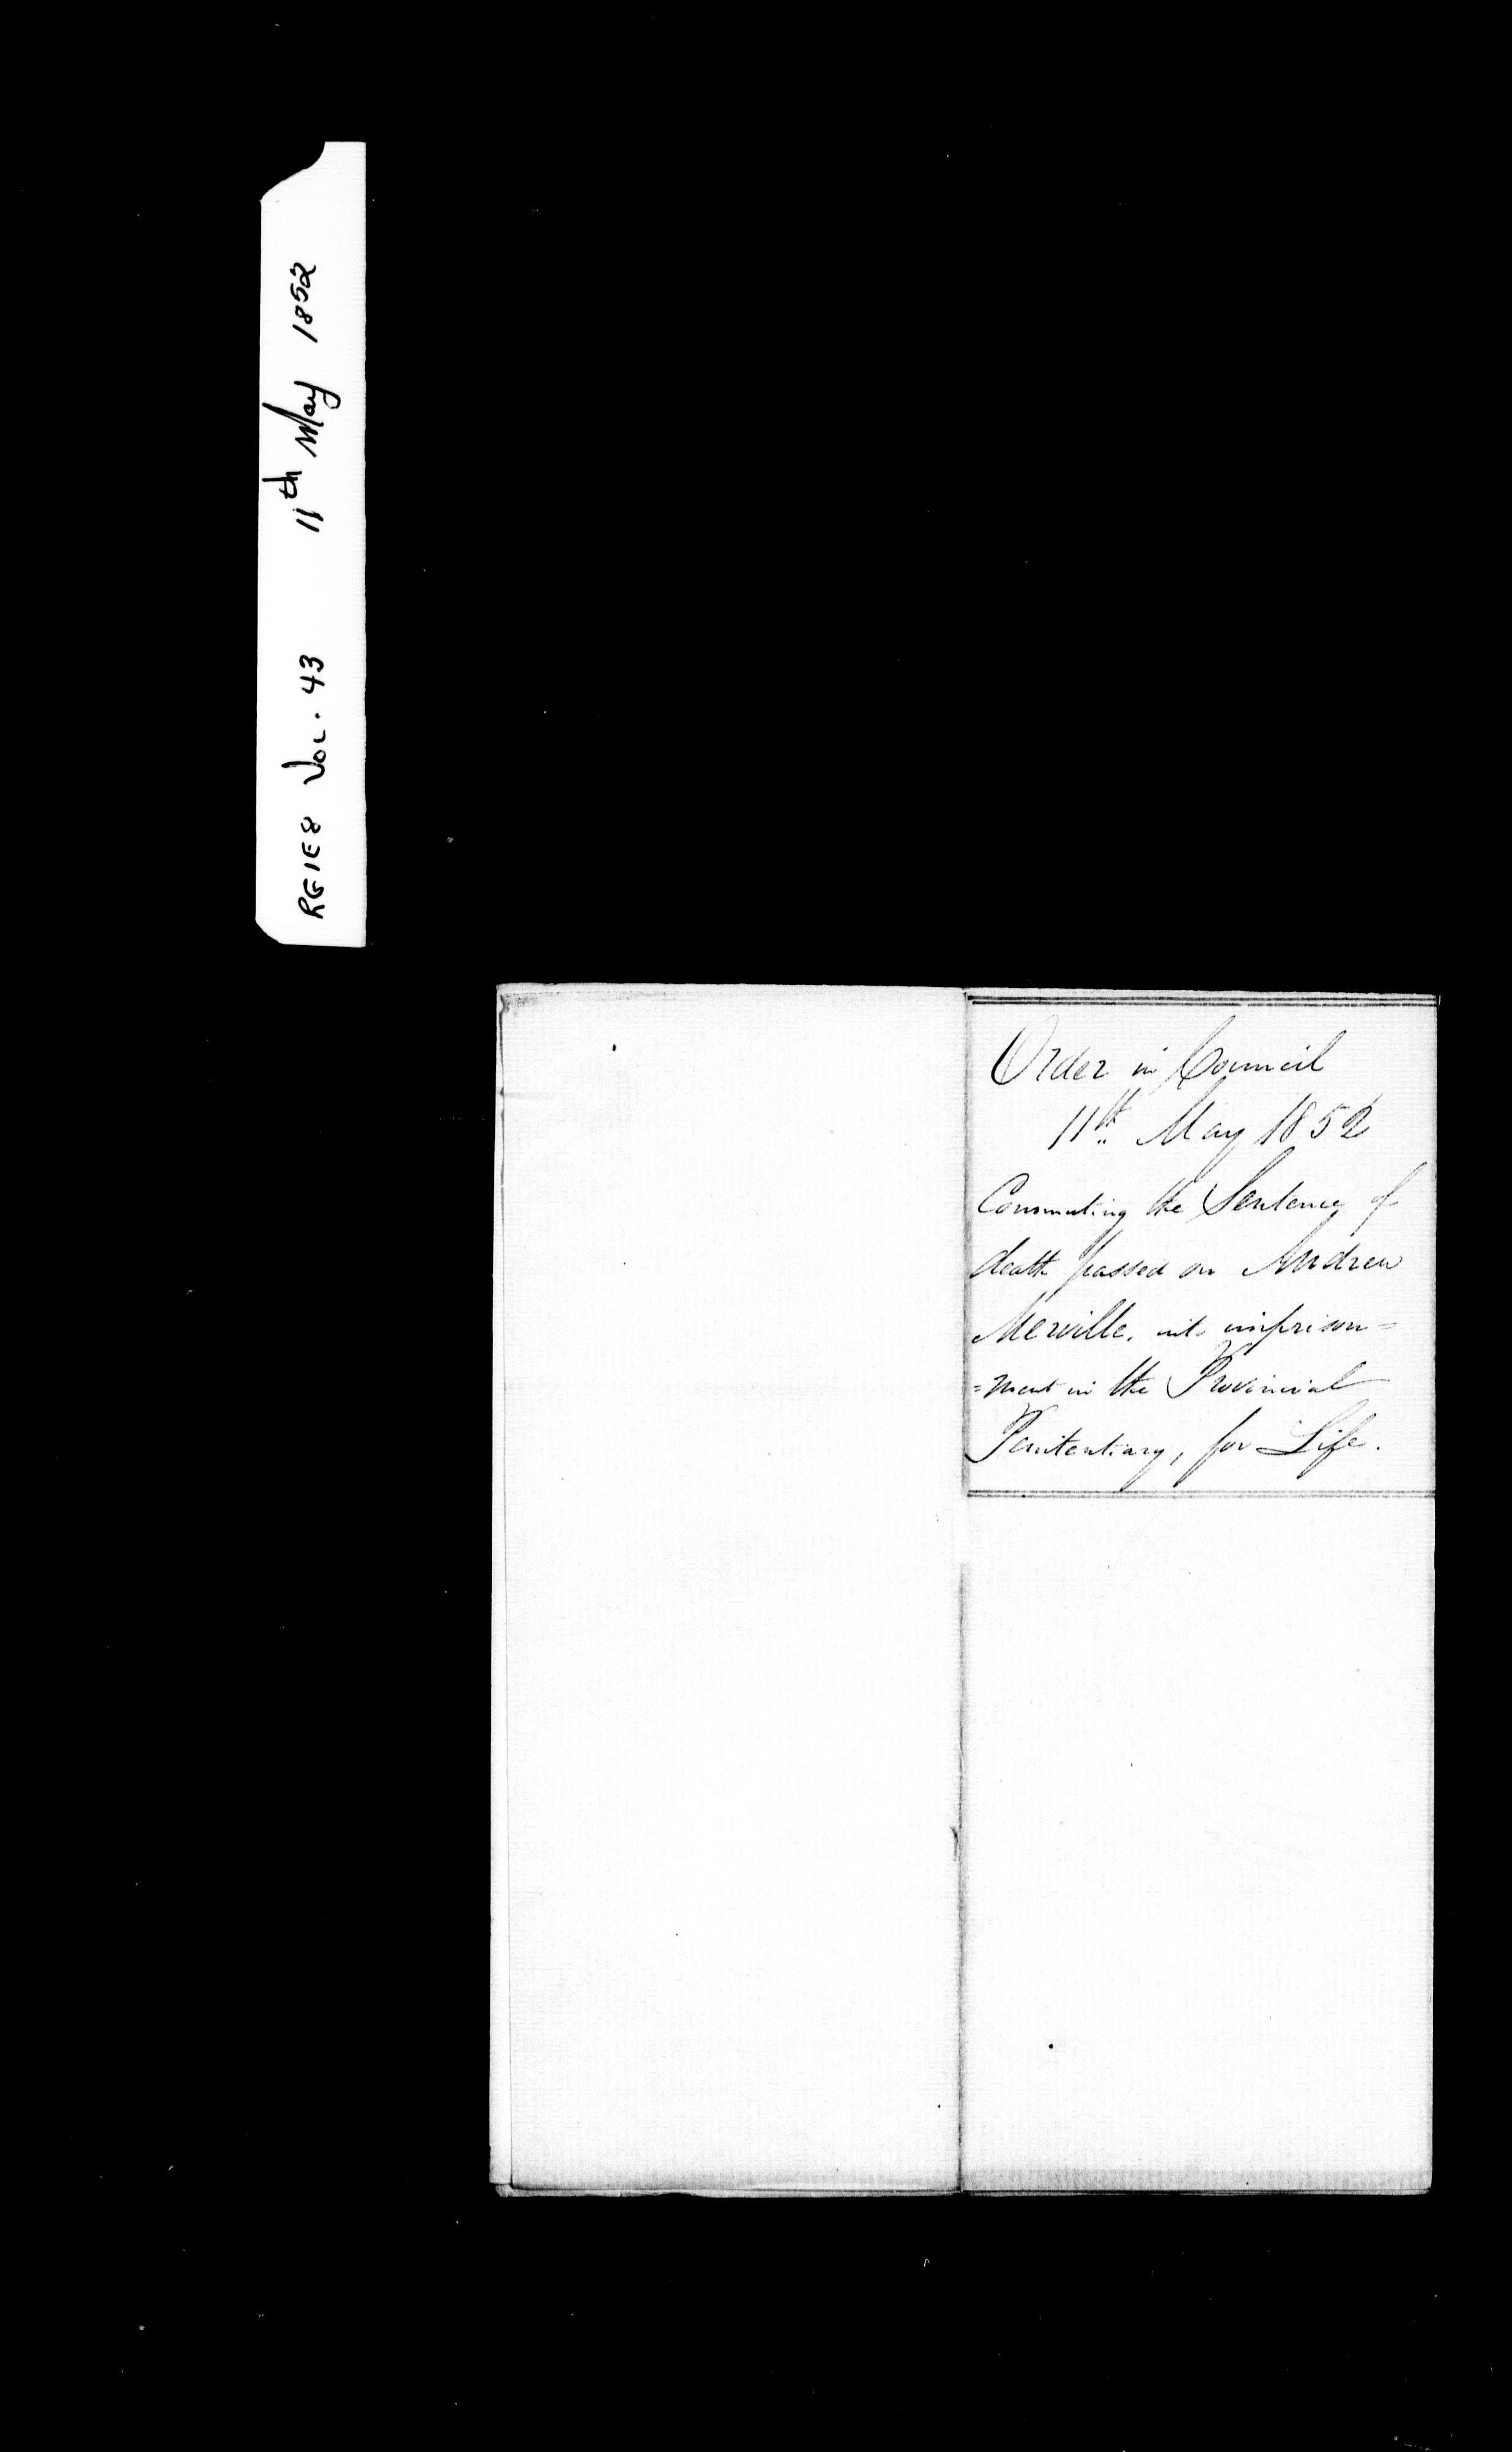 RG1E8 Vol. 43 11th May 1852
Order in Council
11th May 1852
Commuting the Sentence of
death passed on Andrew
Merville, into imprison=
=ment in the Provincial
Penitentiary, for Life.